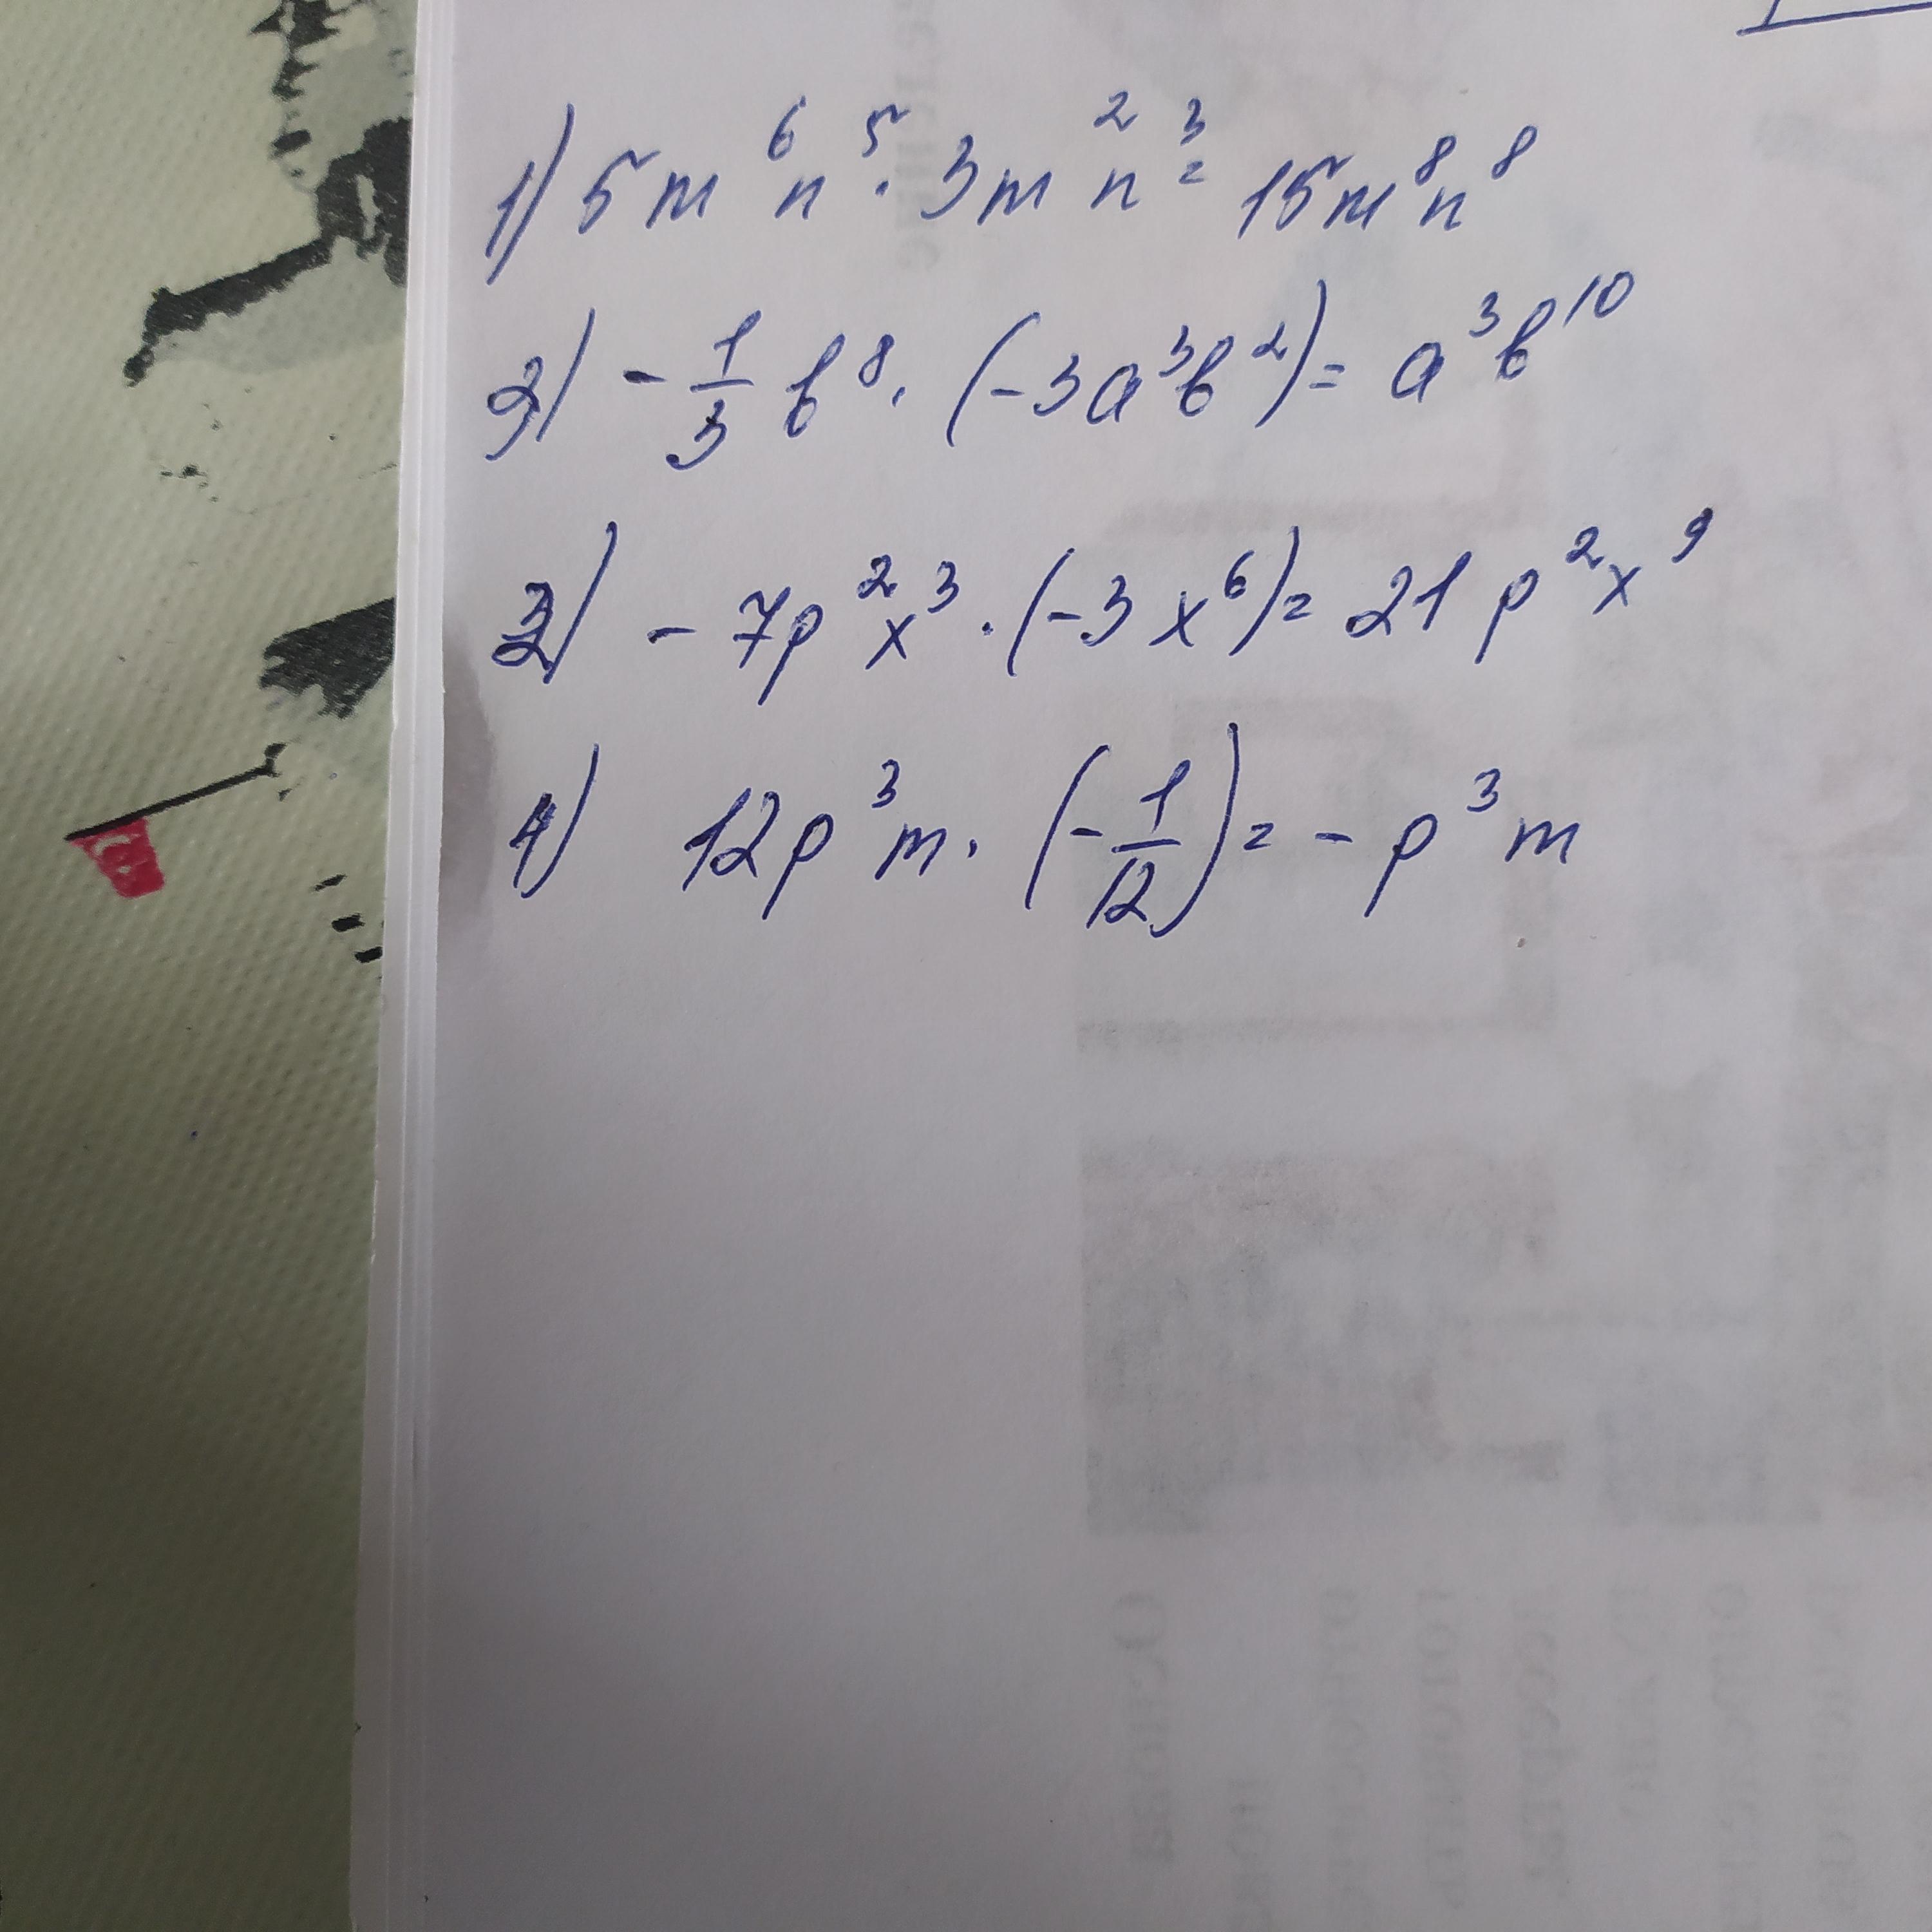 1) 5m⁶n⁵ · 3mn²³ = 15m⁸n⁸
2) - 1/3 b⁸ · (-3a³b²) = a³b¹⁰
3) - 7p²x³ · (-3x⁶) = 21p²x⁹
4) 12p³m · (-1/12) = - p³m